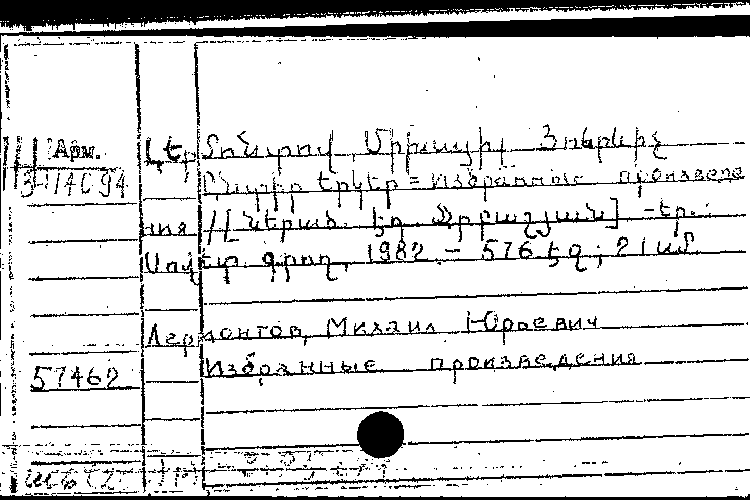 Арм.
Լերմոնտով, Միխայիլ Յուրևիչ
3-114094
Ընտիր երկեր = Избранные произведе
ния / [Ներած. Էդ. Ջրբաշյան] -Եր.:
Սովետ. գրող, 1982. - 576 էջ; 21 սմ.
Лермонтов, Михаил Юрьевич
Избранные произведения
57462